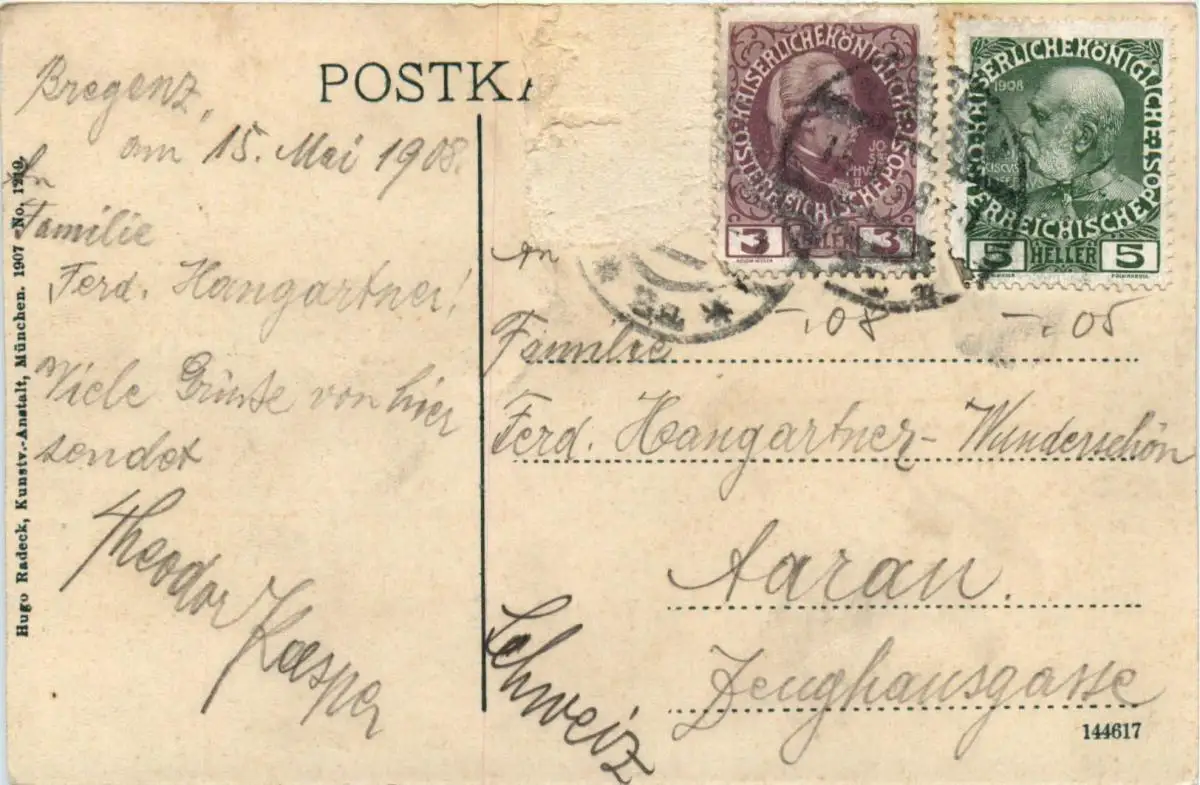 POSTKA
Bregenz,
am 15. Mai 1908.
An
Familie
Ferd. Hangartner!
Viele Grüsse von hier
sendet
Theodor Kasper
Hugo Radeck, Kunstv.-Anstalt, München. 1907 No. 1210.
KAISERLICHEKÖNIGLICHE
ÖSTERREICHISCHEPOST
JOSEPHUS II
3 HELLER 3
KAISERLICHEKÖNIGLICHE
ÖSTERREICHISCHEPOST
1908
5 HELLER 5
-.08 -.05
An
Familie
Ferd. Hangartner-Wunderschön
Aarau.
Zeughausgasse
Schweiz
144617